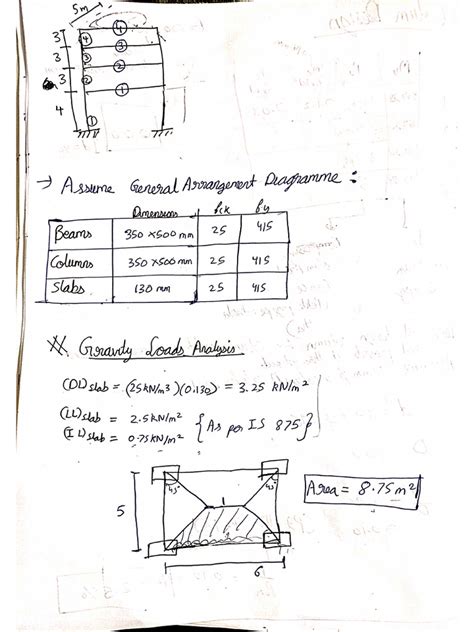 5m
④
3
④
③
3
③
②
3
②
①
4
①
→ Assume General Arrangement Diagramme :
Dimensions fck fy
Beams 350 x500 mm 25 415
Columns 350 x500 mm 25 415
Slabs 130 mm 25 415
Gravity Loads Analysis
(DL)slab = (25kN/m3)(0.130) = 3.25 kN/m²
(LL)slab = 2.5kN/m²
(IL)slab = 0.75kN/m² { As per IS 875 }
45° 45°
Area = 8.75 m²
5
1
6